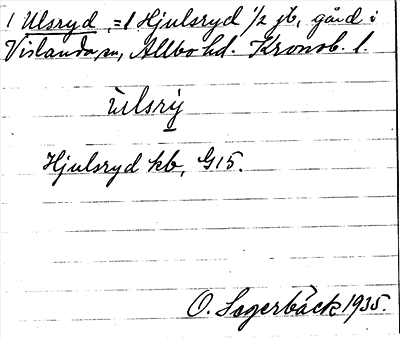 1 Ulsryd, = 1 Hjulsryd 1/2 jb, gård i
Vislanda sn, Allbo hd. Kronob. l.
ùlsrỳ
Hjulsryd kb, G15.
O. Sagerbäck 1935.